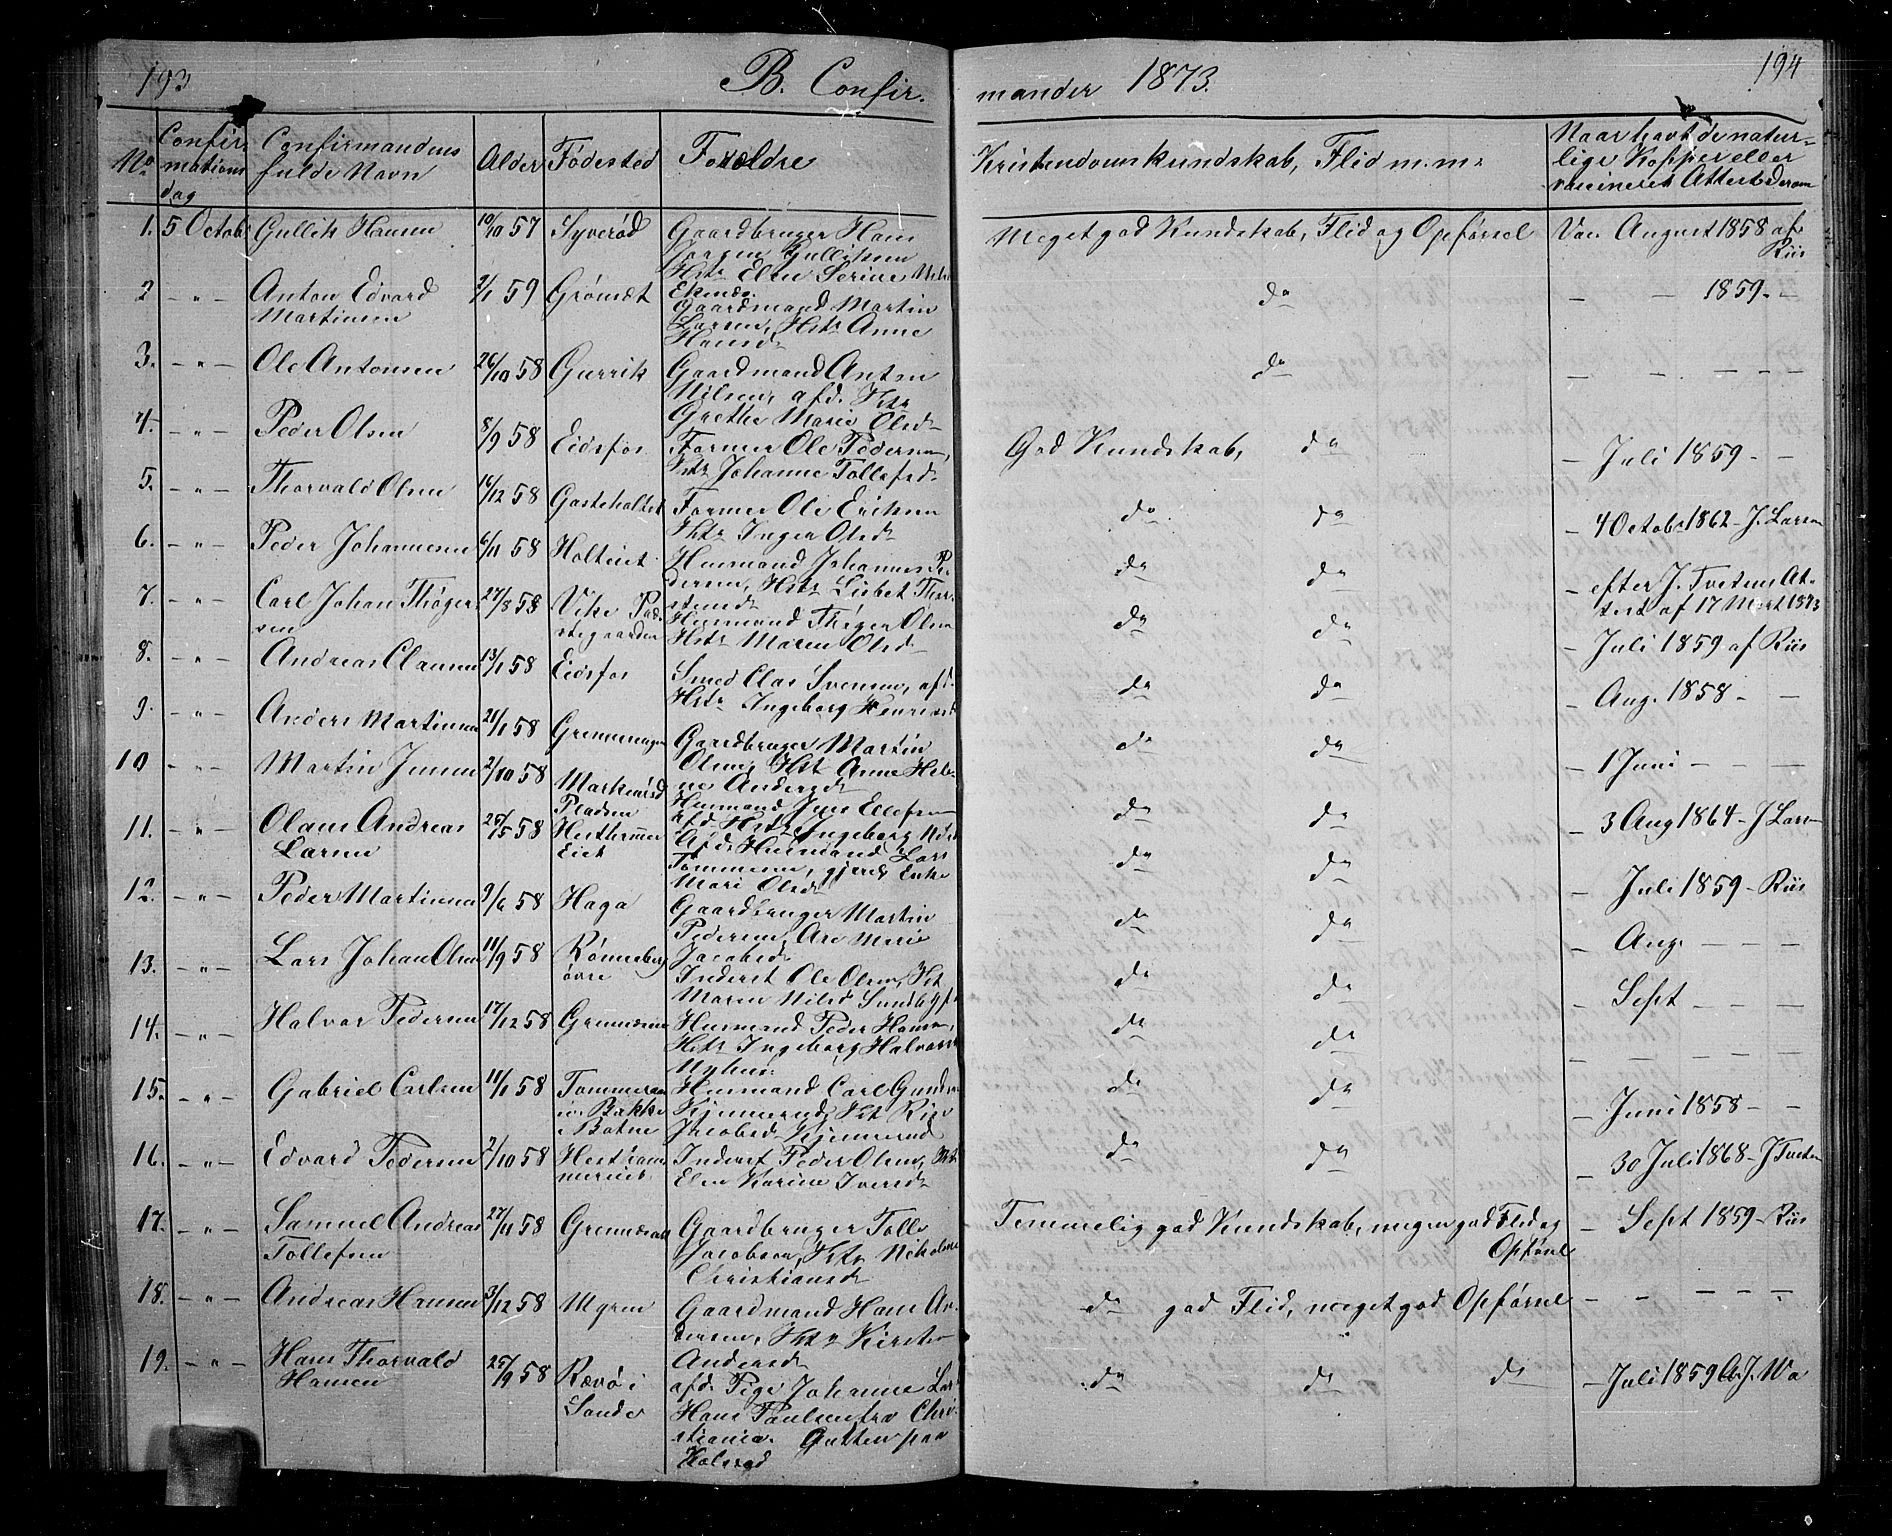 193
B. Confir-
No
Confir-
mations
dag
Confirmandens
fulde Navn
Alder
Fødested
Forældre
1. 5 Octob. Gullik Hansen 10/10 57 Syverød Gaardbruger Hans
Jørgen Gulliksen
Hstr Elen Serine
2 - " - Anton Edvard 2/1 59 Grømæt
Martinsen
Gaardmand Martin
Larsen, Hstr Anne
Hansd.
3. - " - Ole Antonsen 26/10 58 Gurrik Gaardmand Anton
Nilsen, afd. Hstr
Grethe Marie Olsd.
4. - " - Peder Olsen 8/9 58 Eidsfos
Former Ole Pedersen,
Hstr Johanne Tollefsd.
5. - " - Thorvald Olsen 16/12 58 Gasteholtet
Former Ole Eriksen
Hstr Inger Olsd.
6. - " - Peder Johannesen 6/11 58
Husmand Johannes Pe-
dersen, Hstr Lisbet Thor-
stensd.
7. - " - Carl Johan Thøger- 27/8 58 Vike Præ-
sen stegaarden
Husmand Thøger Olsen
Hstr Maren Olsd.
8. - " - Andreas Clausen 13/1 58 Eidsfos
Smed Clas Svensen, afd.
Hstr Ingeborg Henriksd.
9. - " - Anders Martinsen 21/1 58
Gaardbruger Martin
Olsen, Hst Anne Hele-
ne Andersd.
10 - " - Martin Jensen 2/10 58
Pladsen
Husmand Jens Ellefsen
afd Hstr Ingeborg
11. - " - Olaus Andreas 25/5 58
Larsen
Husmand Lars
Tommesen, gjenl. Enke
Mari Olsd.
12. - " - Peder Martinsen 9/6 58 Haga
Gaardbruger Martin
Pedersen, Ane Marie
Jacobsd.
13. - " - Lars Johan Olsen 11/9 58 Rønneberg
øvre
Inderst Ole Olsen, Hst
Maren Nilsd
14. - " - Halvor Pedersen 17/12 58
Husmand Peder Hansen,
Hstr Ingeborg Halvorsd
15. - " - Gabriel Carlsen 11/1 58
i Botne
Husmand Carl
Jacobsd Kjennerud
16. - " - Edvard Pedersen 2/10 58
Inderst Peder Olsen, Hst
Elen Karine Iversd.
17. - " - Samuel Andreas 27/11 58
Tollefsen
Gaardbruger Tolle
Jacobsen, Hstr Nikoline
Christiansd.
18. - " - Andreas Hansen 3/12 58 Myren
Gaardmand Hans An-
dersen, Hstr Kirsten
Andersd.
19. - " - Hans Thorvald 25/9 58 Rævø i
Hansen Sande
afd. Pige Johanne Lars
Hans Paulsen fra Chri-
stiania. Gutten paa
194
mander 1873.
Kristendomskundskab, Flid m.m.
Naar havt de natur-
lige Kopper eller
vaccineret. Attest derom
Meget god Kundskab, Flid og Opførsel Vac. August 1858 af
Riis
do - - 1859 - -
do - - - - -
God Kundskab, do - Juli 1859 - -
do do - 4 Octobr 1862 - J. Larsen
do do - efter J. Tvetens At-
test af 17 Mart 1873
do do - Juli 1859 af Riis
do do - Aug. 1858 - -
do do - 1 Juni - - -
do do - 3 Aug 1864 - J Larsen
do do - Juli 1859 - Riis
do do - Aug. - - -
do do - Sept - - -
do do - - - - -
do do - Juni 1858 - -
do do - 30 Juli 1868 - J Tveten
Temmelig god Kundskab, megen god Flid og - Sept 1859 - Riis
Opførsel
do god Flid, meget god Opførsel - - - - -
do do do - Juli 1859